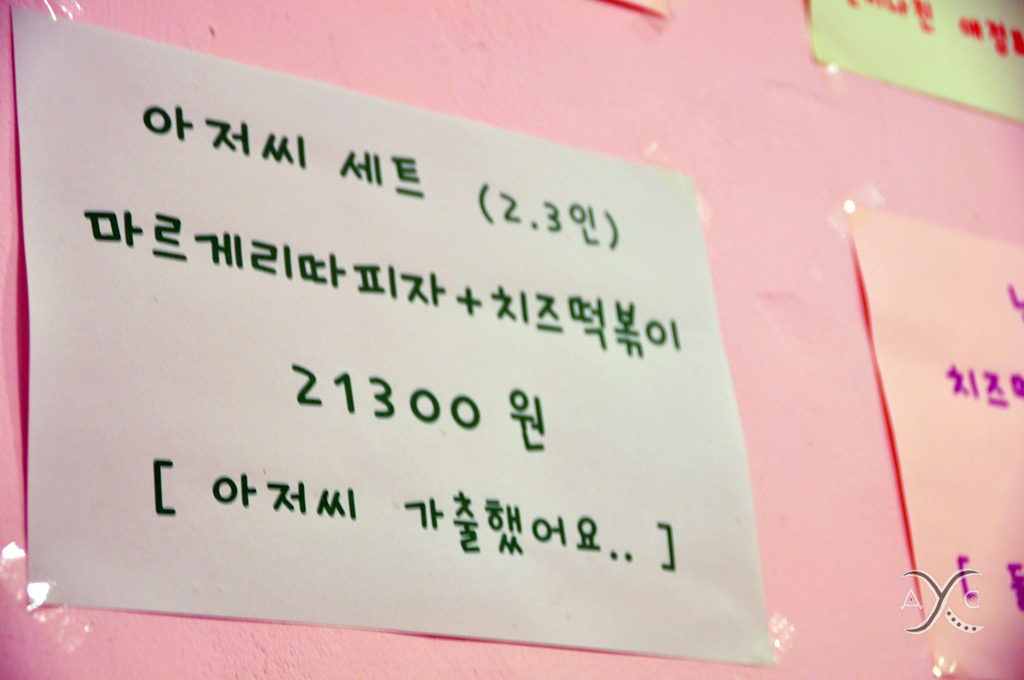 아저씨 세트 (2.3인)
마르게리따피자+치즈떡볶이
21300 원
[ 아저씨 가출했어요.. ]
애정
치즈떡
[ 돌
AYC